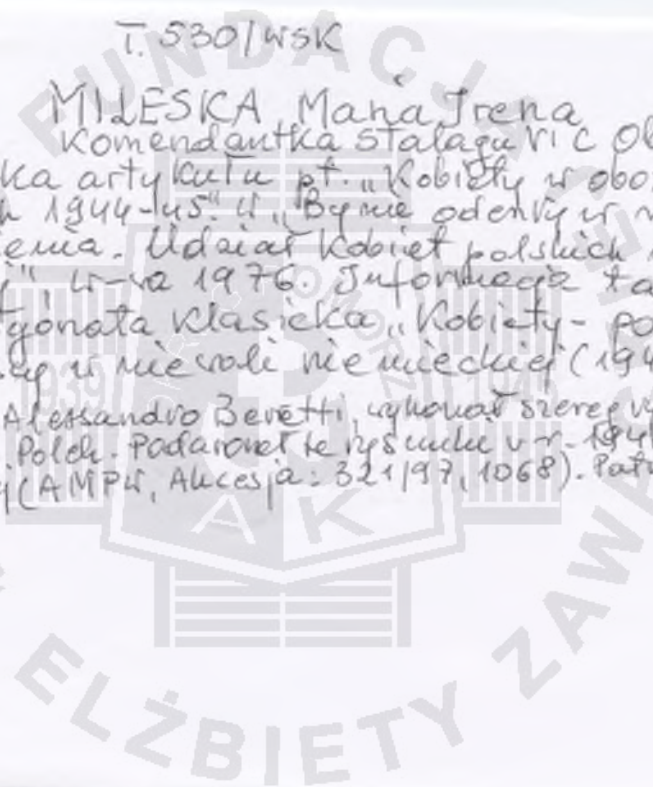 T. 530/WSK
MILESKA Maria Irena
Komendantka Stalagu VI C Ob
ka artykułu pt. "Kobiety w obo
h 1944-45". W "By nie odeszły w
enia. Udział kobiet polskich
" W-wa 1976. Informacja ta
gonata Klasicka, "Kobiety - po
w niewoli niemieckiej (194
Alessandro Beretti, wykonał szereg
Polek. Podarował te rysunki w r. 194
(AMPW, Akcesja: 321/97, 1068). Pat
FUNDACJA
ELŻBIETY ZAWA
POMORZE
1939
1945
AK